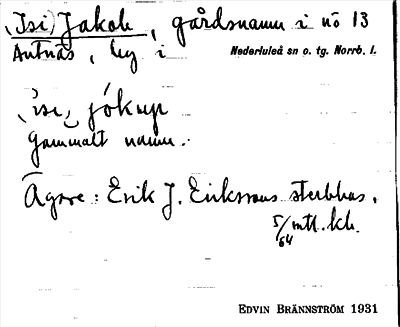 (Isi) Jakob, gårdsnamn i nö 13
Antnäs, by i Nederluleå sn o. tg. Norrb. l.
jókup
Gammalt namn.
Ägare: Erik J. Erikssons sterbhus,
5/64 mtl. kb.
EDVIN BRÄNNSTRÖM 1931